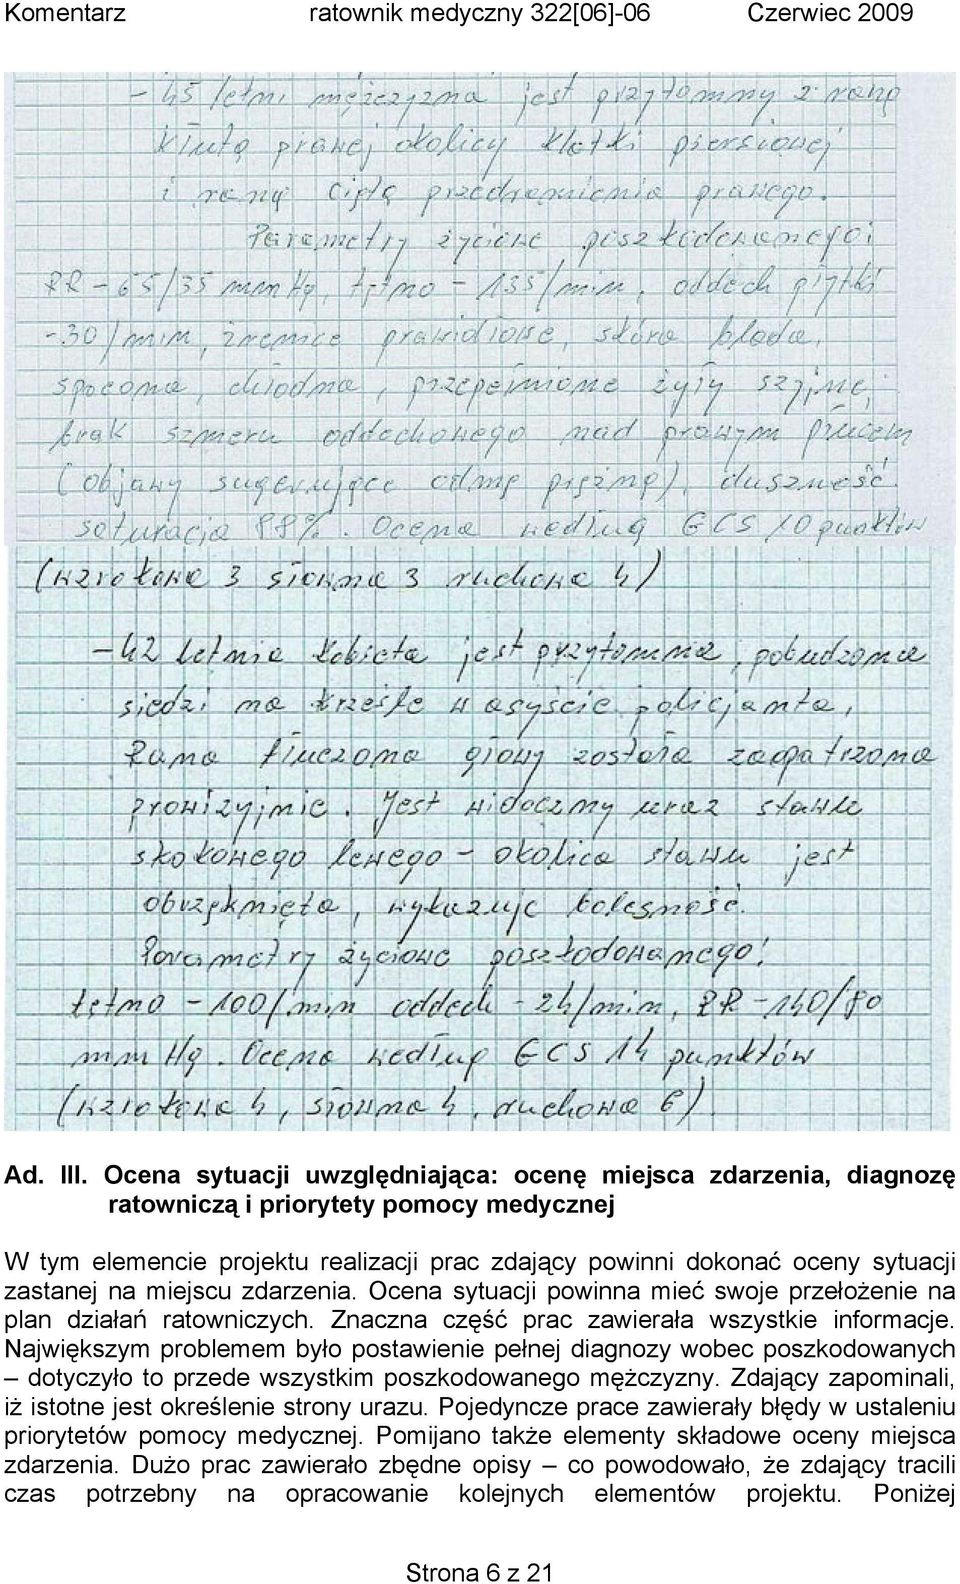 Komentarz ratownik medyczny 322[06]-06 Czerwiec 2009
- 45 letni mężczyzna jest przytomny z raną
kłutą prawej okolicy klatki piersiowej
i raną ciętą przedramienia prawego.
Parametry życiowe poszkodowanego:
RR - 65/35 mmHg, tętno - 135/min, oddech płytki
- 30/min, źrenice prawidłowe, skóra blada,
spocona, chłodna, przepełnione żyły szyjne,
brak szmeru oddechowego nad prawym płucem
(objawy sugerujące odmę prężną), duszność.
saturacja 88%. Ocena według GCS 10 punktów
(wzrokowa 3 słowna 3 ruchowa 4)
- 42 letnia kobieta jest przytomna, pobudzona
siedzi na krześle w asyście policjanta,
Rana tłuczona głowy została zaopatrzona
prowizyjnie. Jest widoczny uraz stawu
skokowego lewego - okolica stawu jest
obrzęknięta, wykazuje bolesność.
Parametry życiowe poszkodowanego:
tętno - 100/min oddech - 24/min, RR - 140/80
mmHg. Ocena według GCS 14 punktów
(wzrokowa 4, słowna 4, ruchowa 6).
Ad. III. Ocena sytuacji uwzględniająca: ocenę miejsca zdarzenia, diagnozę
ratowniczą i priorytety pomocy medycznej
W tym elemencie projektu realizacji prac zdający powinni dokonać oceny sytuacji
zastanej na miejscu zdarzenia. Ocena sytuacji powinna mieć swoje przełożenie na
plan działań ratowniczych. Znaczna część prac zawierała wszystkie informacje.
Największym problemem było postawienie pełnej diagnozy wobec poszkodowanych
– dotyczyło to przede wszystkim poszkodowanego mężczyzny. Zdający zapominali,
iż istotne jest określenie strony urazu. Pojedyncze prace zawierały błędy w ustaleniu
priorytetów pomocy medycznej. Pomijano także elementy składowe oceny miejsca
zdarzenia. Dużo prac zawierało zbędne opisy – co powodowało, że zdający tracili
czas potrzebny na opracowanie kolejnych elementów projektu. Poniżej
Strona 6 z 21